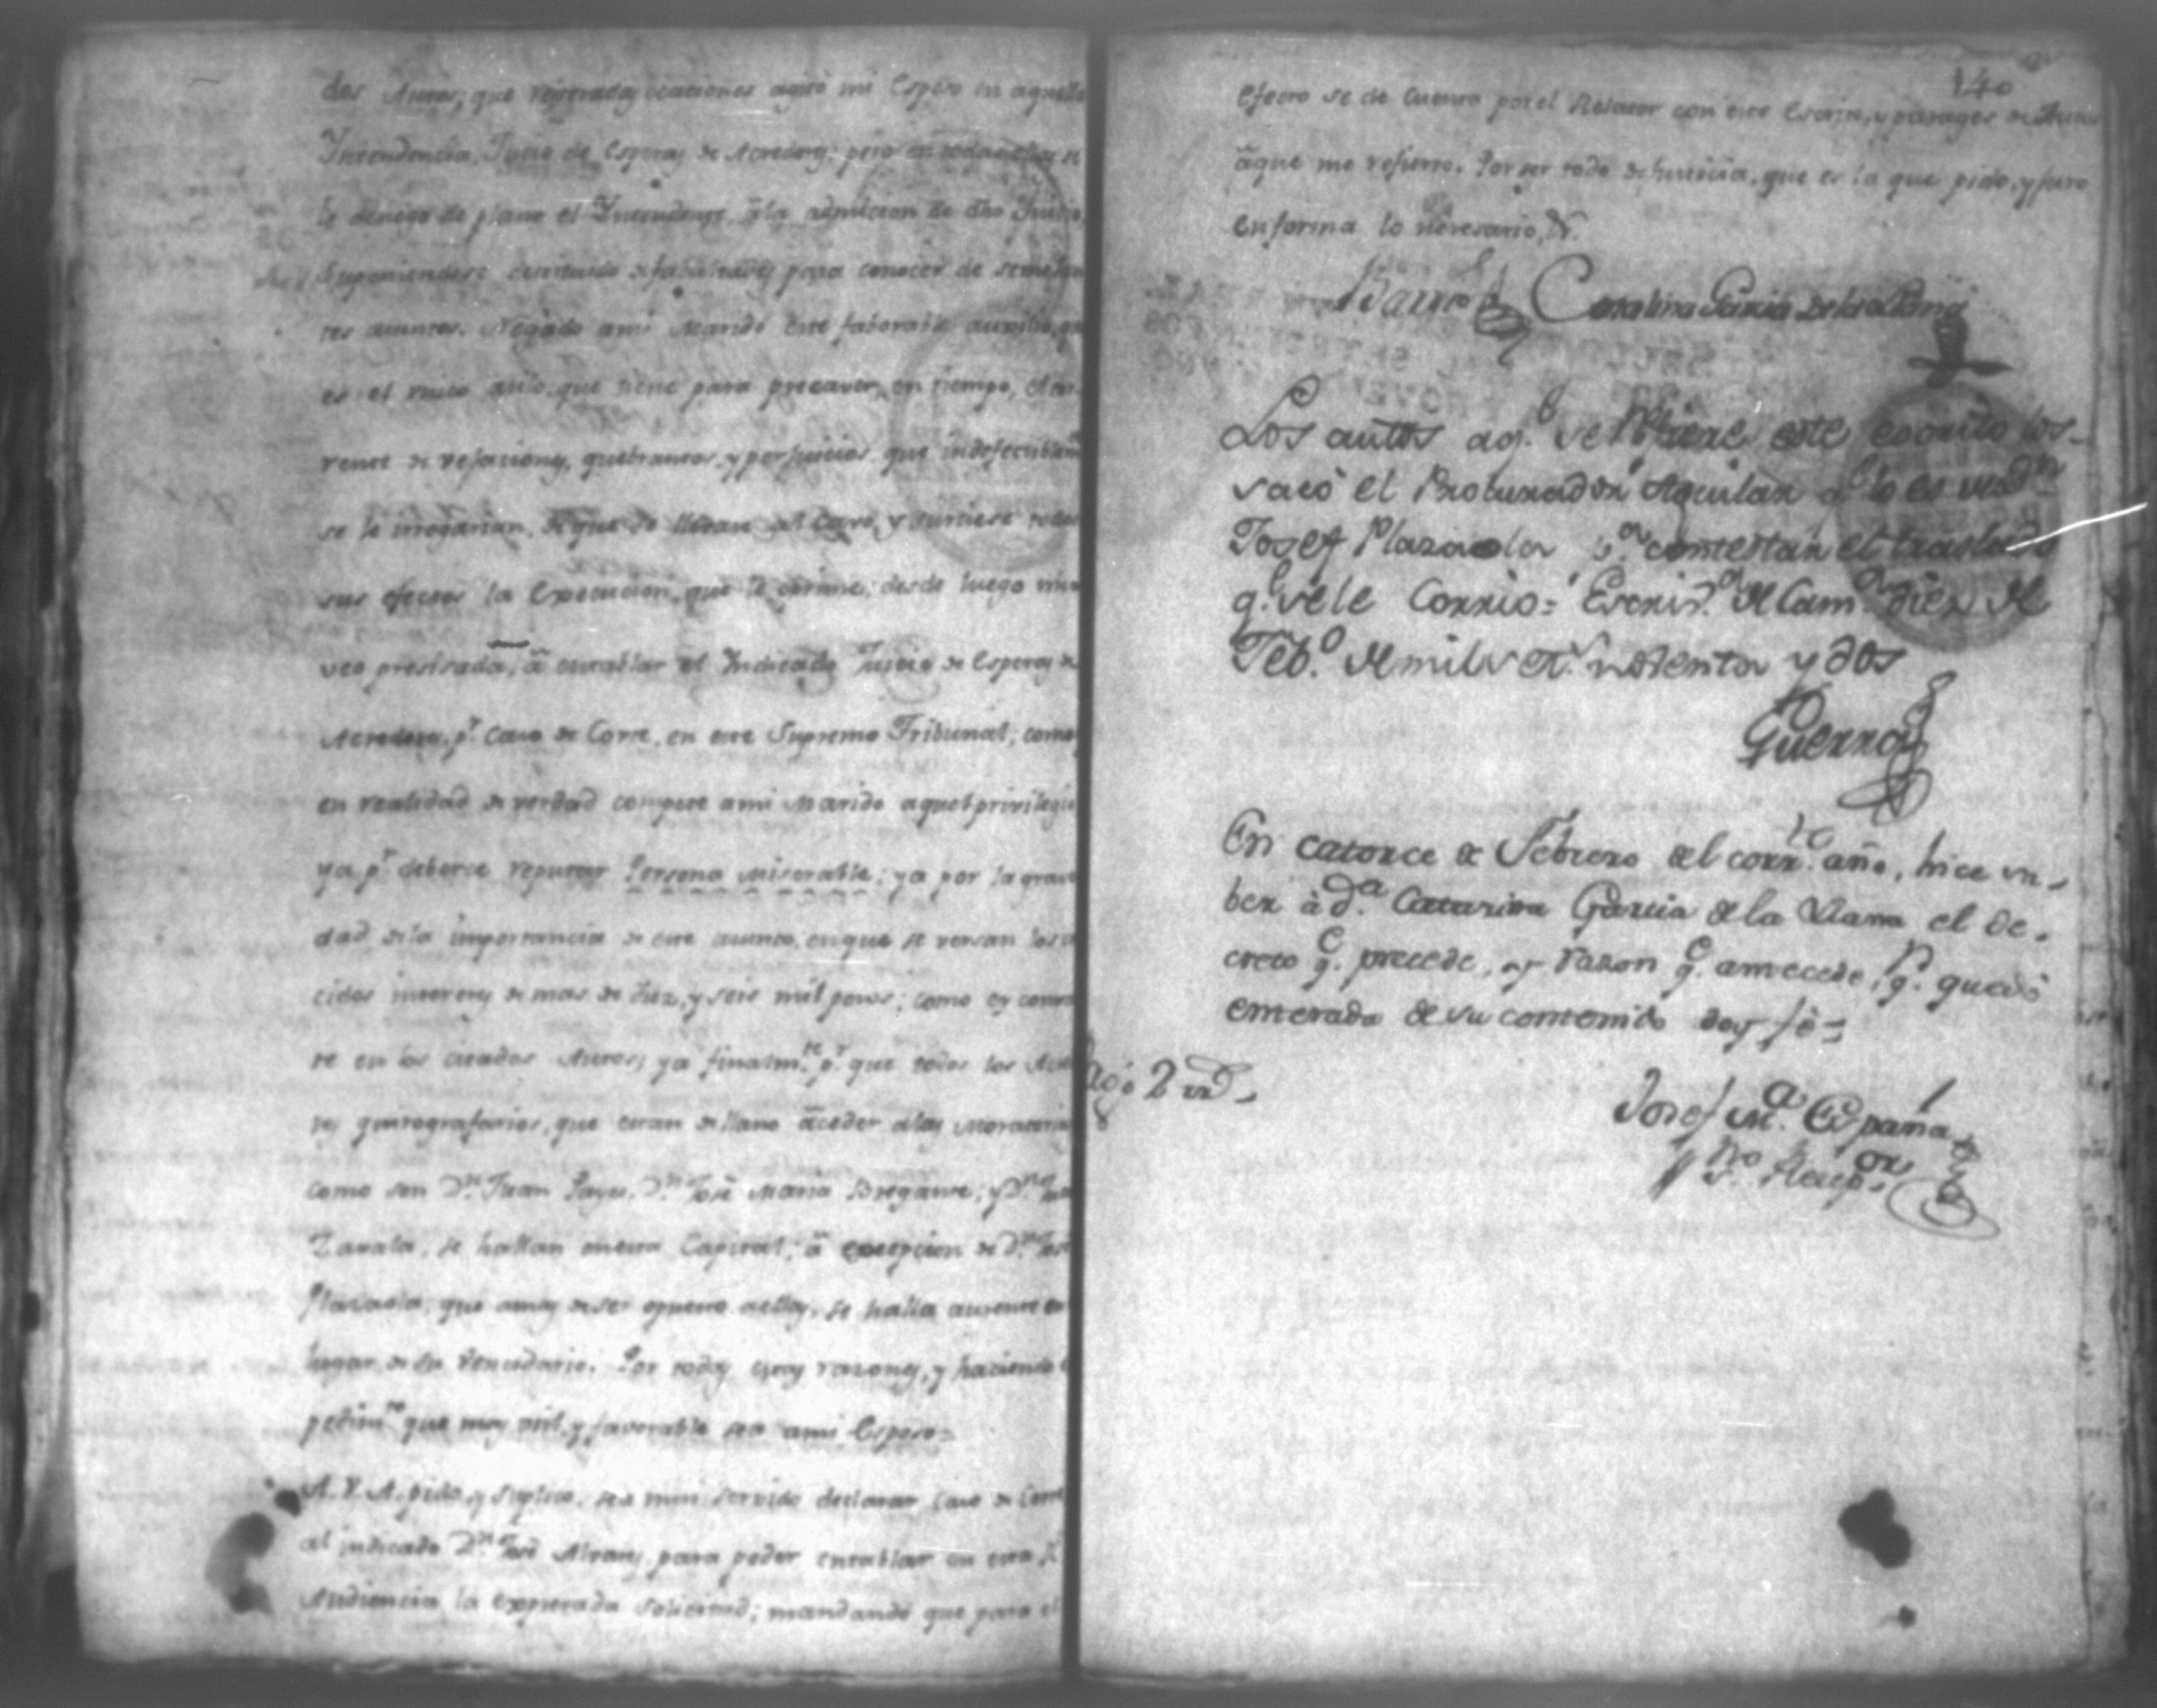 dos Autos; que repetidas ocaciones agitó mi Esposo en aquella
Intendencia, Juicio de Esperas de Acredores; pero en todas ellas se
le denegó de plano el Intendente, â la admicion de dho Juicio,
Suponiendose destituido de facultades para conocer de semejan
tes asuntos. Negado ami Marido este faborable auxilio, que
es el unico asilo, que tiene para precaver, en tiempo, el tor-
rente de vejaciones, quebrantos, y perjuicios, que indefectiblem
se le irrogarian, si que se llebase al Cavo, y surtiese todos
sus efectos la Execucion, que le oprime; desde luego me
veo presisada, â entablar el Indicado Juicio de Esperas de
Acredores, pr. Caso de Corte, en este Supremo Tribunal; como
en realidad de verdad compete ami Marido aquel privilegio
ya pr. deberse reputar Persona Miserable; ya por la grave
dad de la importancia de este asunto, enque se versan los
cidos intereses de mas de diez, y seis mil pesos; como es cons
te en los citados Autos; ya finalmte. pr. que todos los Acre
res quirografarios, que eran de llano âceder alas Moratorias
como son Dn. Juan Payas, Dn. José Maria Bregante; y Dn.
Zavala, se hallan enesta Capital; â excepcion de Dn. José
Plazaola, que amas de ser opuesto aellas, se halla ausente en
lugar de su Vencidario. Por todas estas razones, y haciendo
pedimto. que mas util, y favorable sea ami Esposo=
A. V. A. pido, y Suplico, sea mui servido declarar, Caso de Corte
al indicado Dn. José Alvarez, para poder entablar en esta Rl
Audiencia la expresada Solicitud; mandando que para el
140
efecto se de Cuenta por el Relator con este Escrito, y parages de Autos
âque me refiero. Por ser todo de Justicia, que es la que pido, y juro
enforma lo necesario, &.
Catalina Garcia de la Llama
Los autos aq.e se refiere este escrito los
sacó el Procurador Aguilar q.e lo es de Dn
Josef Plazaola pa. contestar el traslado
q.e se le corrio= Escriva. de Cama. diez de
Febo. de mil set.s nobenta y dos
Guerra
En catorce de Febrero del corrte. año, hice sa-
ber â da. Catarina Garcia de la Llama el de-
creto q.e precede, y razon q.e antecede, q.e quedó
enterada de su contenido doy fe=
Pagó 2 rs
Josef Ma. España
Sno. Recepor.